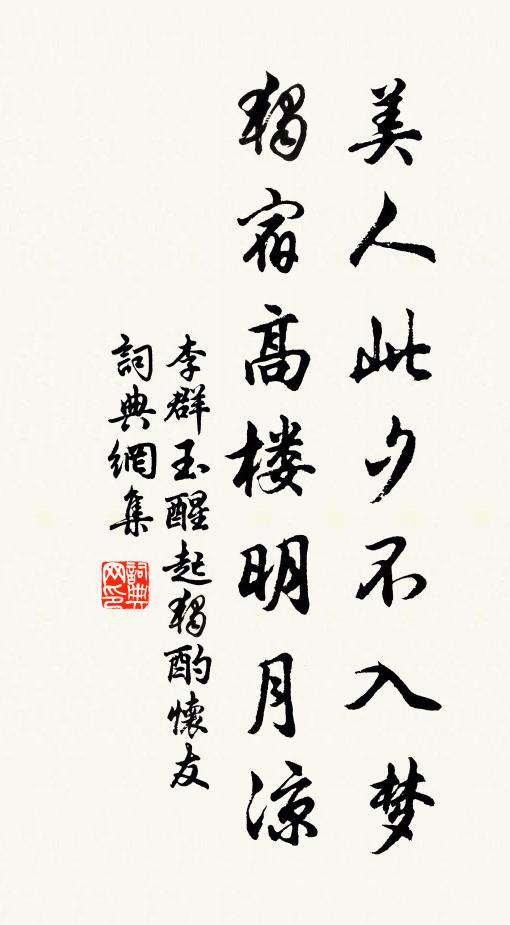 美人此夕不入梦
独宿高楼明月凉
李群玉醒起独酌懷友
詞典網集
詞典网印